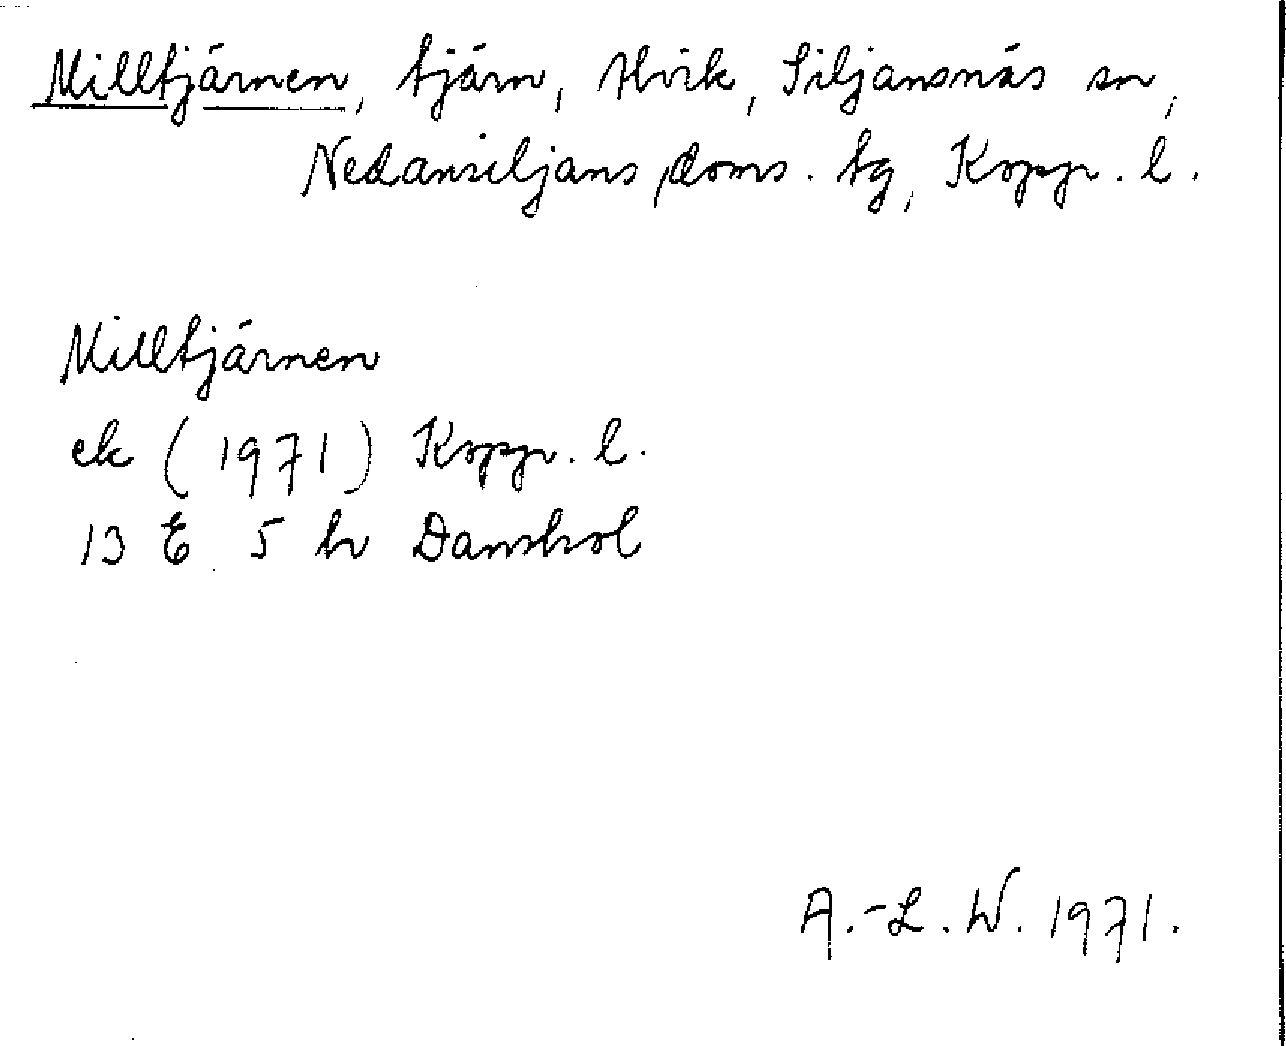 Milltjärnen, tjärn, Alvik, Siljansnäs sn,
Nedansiljans doms. tg, Kopp. l.
Milltjärnen
ek (1971) Kopp. l.
13 E 5 h Dansbol
A.-L. W. 1971.